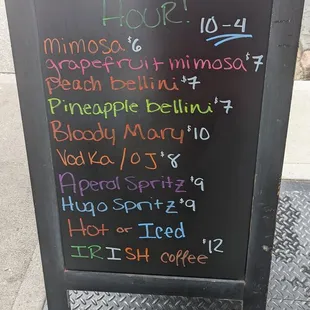 HOUR!
10-4
mimosa $6
grapefruit mimosa $7
peach bellini $7
Pineapple bellini $7
Bloody Mary $10
Vodka / OJ $8
Aperol Spritz $9
Hugo Spritz $9
Hot or Iced
IRISH coffee $12